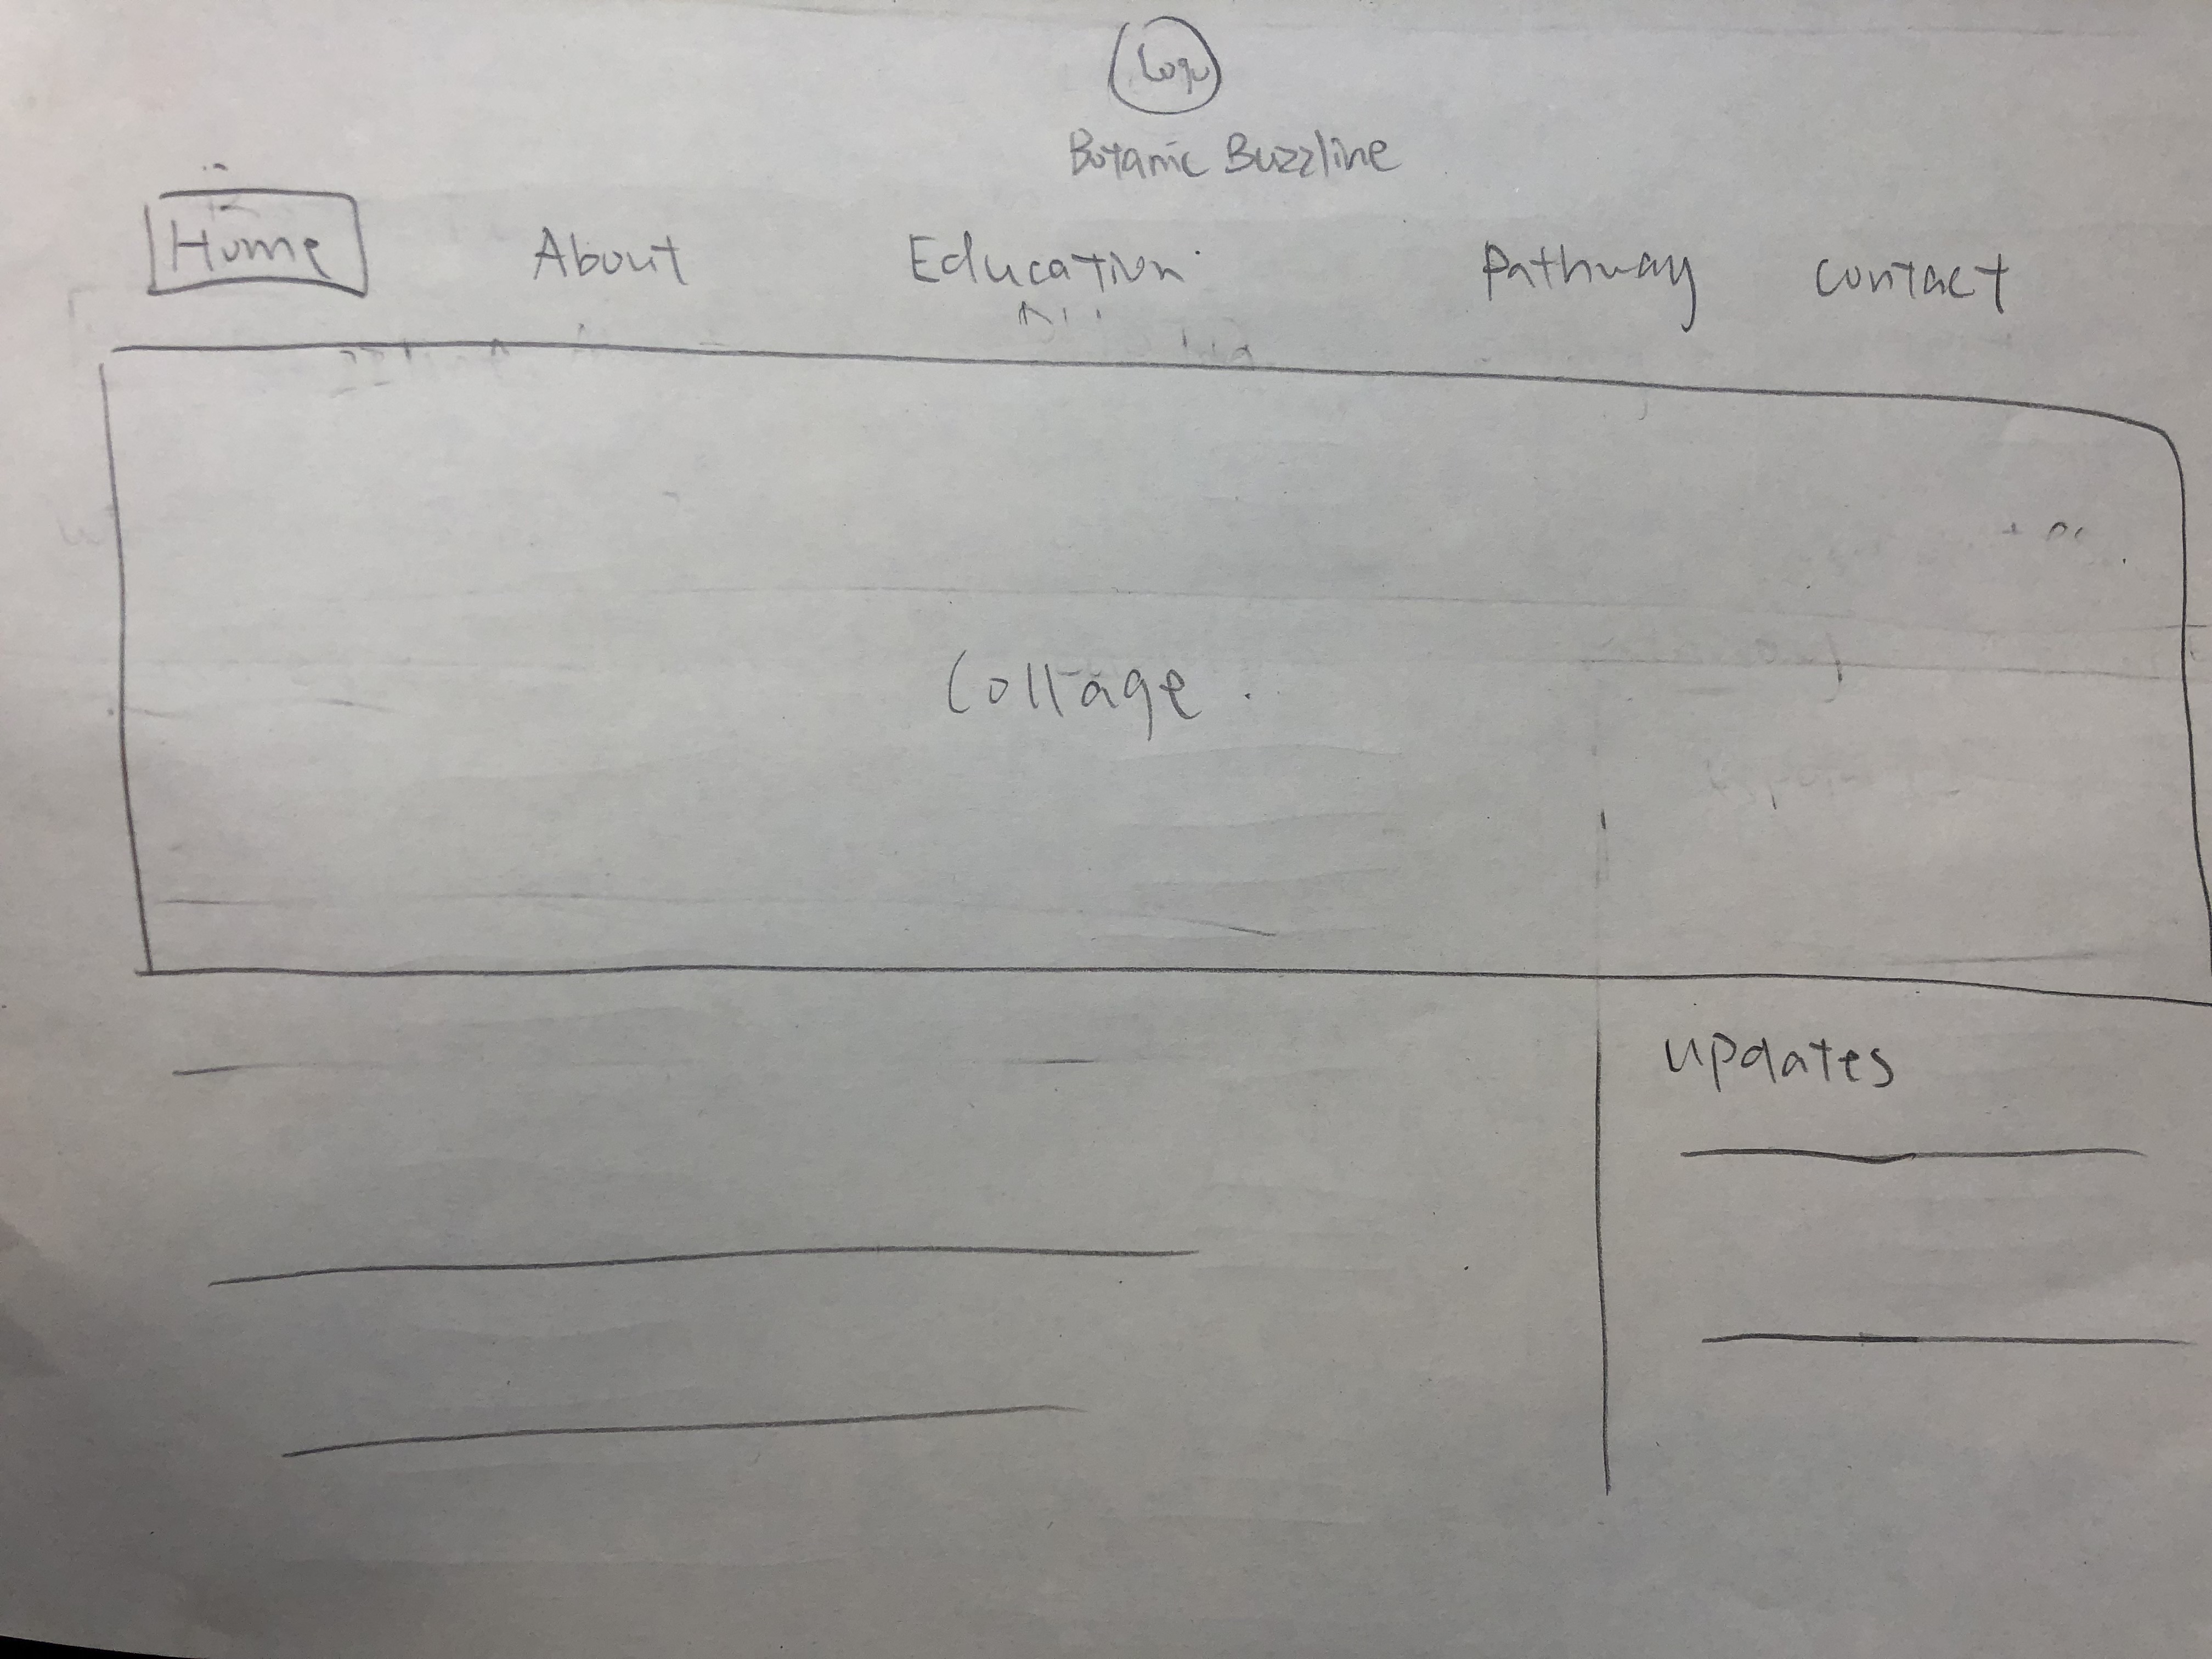 Logo
Botanic Buzzline
Home About Education Pathway contact
Collage.
updates